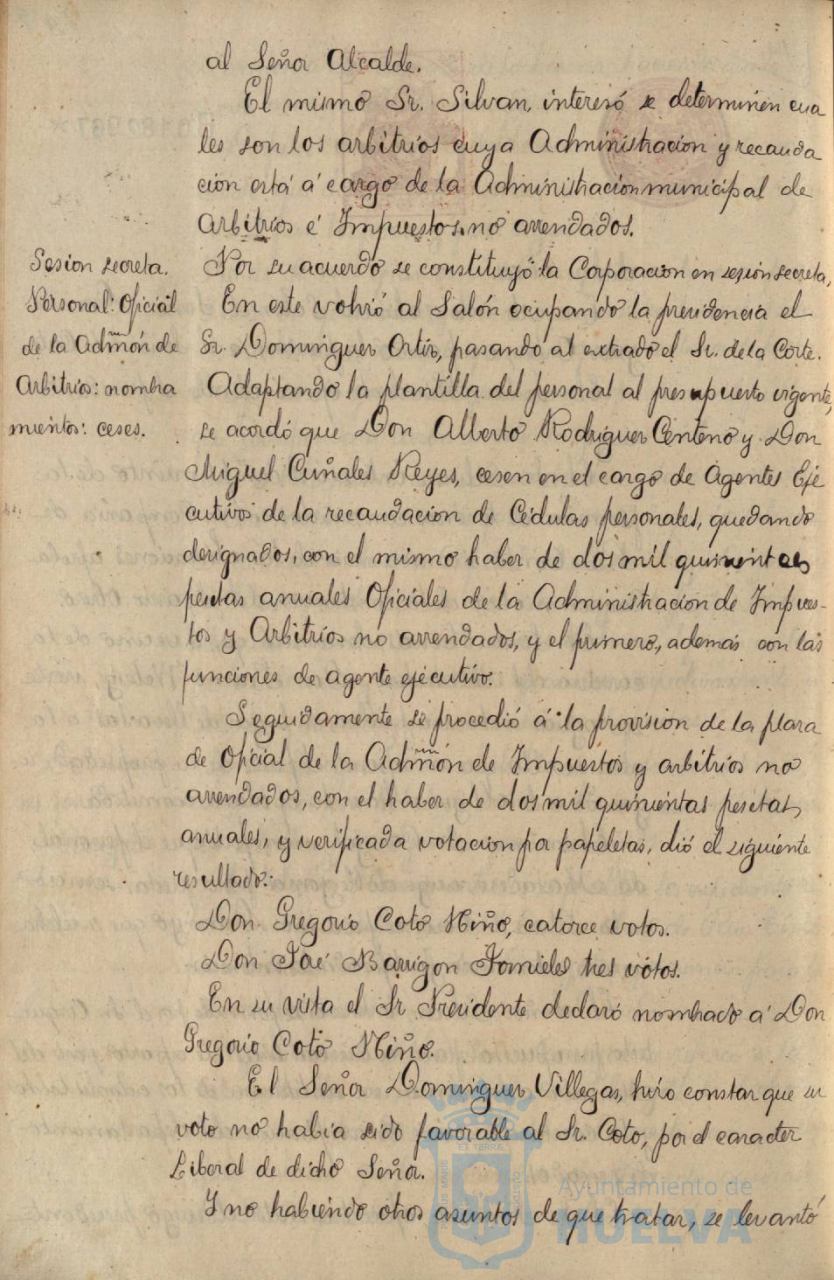 al Señor Alcalde.
El mismo Sr. Silvan, interesó se determinen cua
les son los arbitrios cuya Administracion y recauda
cion está á cargo de la Administracion municipal de
Arbitrios é Impuestos no arrendados.
Sesion secreta.
Personal: Oficial
de la Admñón de
Arbitrios: nombra
mientos: ceses.
Por su acuerdo se constituyó la Corporacion en sesion secreta,
En este volvió al Salón ocupando la presidencia el
Sr. Dominguez Ortiz, pasando al estrado el Sr. de la Corte.
Adaptando la plantilla del personal al presupuesto vigente,
se acordó que Don Alberto Rodriguez Centeno y Don
Miguel Cuñales Reyes, cesen en el cargo de Agentes Eje
cutivos de la recaudacion de Cédulas personales, quedando
designados, con el mismo haber de dos mil quinientas
pesetas anuales Oficiales de la Administracion de Impues-
tos y Arbitrios no arrendados, y el primero, además con las
funciones de agente ejecutivo.
Seguidamente se procedió á la provision de la plaza
de Oficial de la Admñón de Impuestos y arbitrios no
arrendados, con el haber de dos mil quinientas pesetas
anuales, y verificada votacion por papeletas, dió el siguiente
resultado:
Don Gregorio Coto Niño, catorce votos.
Don José Barrigon tres votos.
En su vista el Sr Presidente declaró nombrado á Don
Gregorio Coto Niño.
El Señor Dominguez Villegas, hizo constar que su
voto no habia sido favorable al Sr. Coto, por el caracter
Liberal de dicho Señor.
Y no habiendo otros asuntos de que tratar, se levantó
Ayuntamiento de
HUELVA